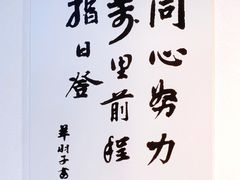 同心努力
万里前程
指日登
华羽子书